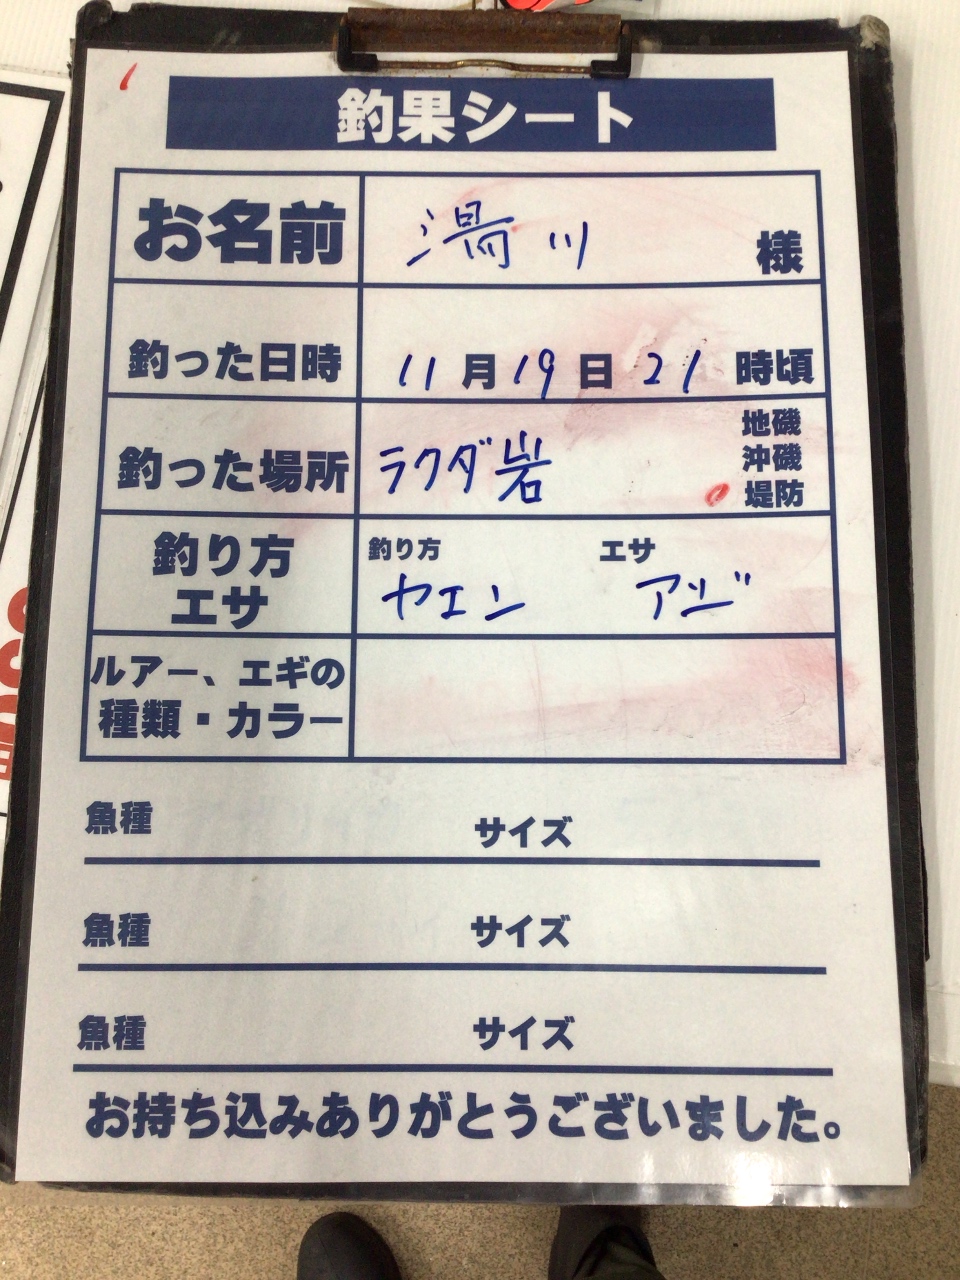 釣果シート
お名前 湯川 様
釣った日時 11月19日21時頃
釣った場所 ラクダ岩 地磯
沖磯
堤防
釣り方 エサ
釣り方
エサ ヤエン アジ
ルアー、エギの
種類・カラー
魚種 サイズ
魚種 サイズ
魚種 サイズ
お持ち込みありがとうございました。